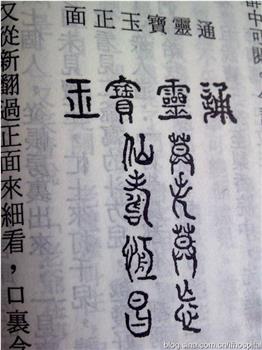 通靈寶玉正面
通靈寶玉
莫失莫忘
仙壽恆昌
又從新翻過正面來細看，口裏念
blog.sina.com.cn/lfhospital